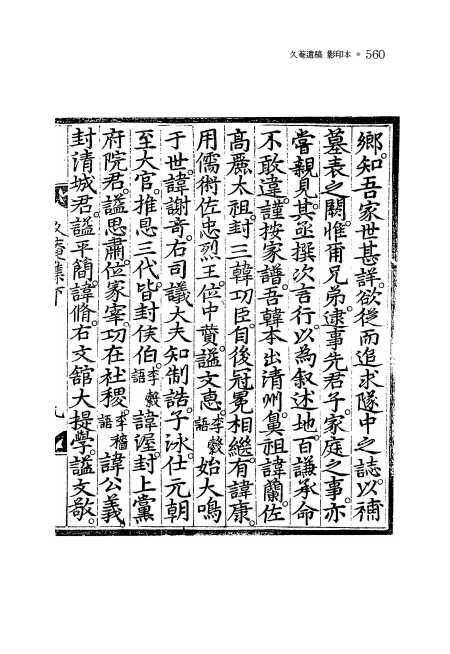 久菴遺稿 影印本 ● 560
鄕。知吾家世甚詳。欲從而追求隧中之誌。以補
墓表之闕。惟爾兄弟。逮事先君子。家庭之事。亦
嘗親見。其亟撰次言行。以為叙述地。百謙承命
不敢違。謹按家譜。吾韓本出淸州。鼻祖諱蘭。佐
高麗太祖。封三韓功臣。自後冠冕相繼。有諱康。
用儒術佐忠烈王。位中贊。謚文惠。李穀語 始大鳴
于世。諱謝奇。右司議大夫知制誥。子泳。仕元朝
至大官。推恩三代。皆封侯伯。李穀語 諱渥。封上黨
府院君。謚思肅。位冢宰。功在社稷。李穡語 諱公義。
封清城君。謚平簡。諱脩。右文舘大提學。謚文敬。
久菴集下 九